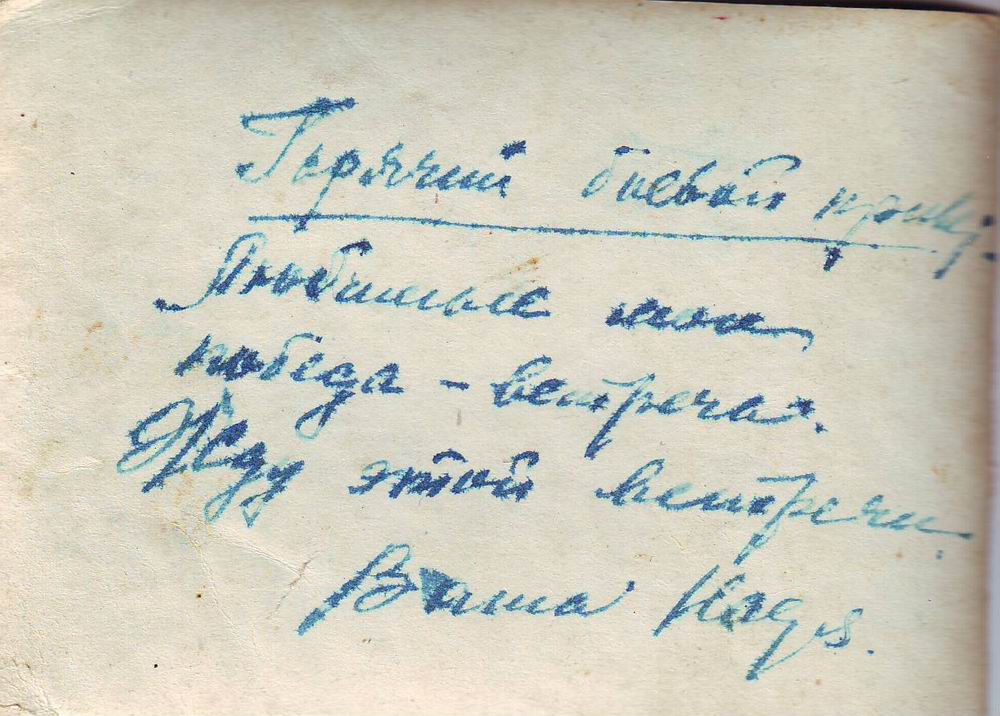 Горячий боевой привет
Любимые мои
победа - встреча.
Жду этой встречи.
Ваша Надя.